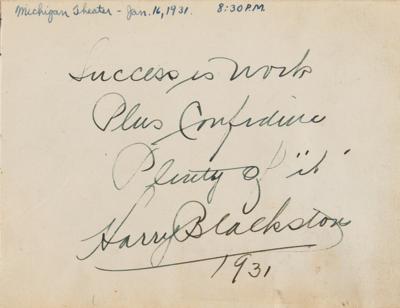 Michigan Theater - Jan. 16, 1931. 8:30 P.M.
Success is Work
Plus Confidence
Plenty of "it"
Harry Blackstone
1931